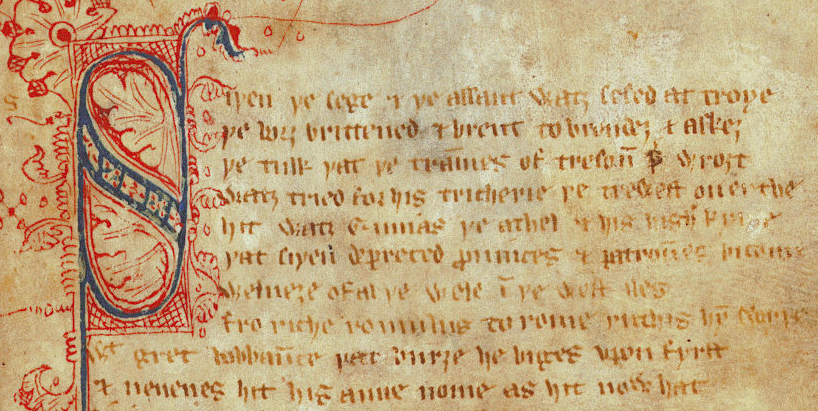 Siþen þe sege & þe assaut watz sesed at troye
þe borȝ brittened & brent to brondeȝ & askez
þe tulk þat þe trāmes of tresoū þ̵ wroȝt
Watz tried for his tricherie þe trewest on erthe
hit watz Ennias þe athel & his highe kynde
þat siþen depreced ꝓuinces & patroūes bicome
Welneȝe of al þe wele ī þe west iles
fro riche romulus to rome ricchis hȳ swyþe
wᵗ gret bobbaūce þat burȝe he biges vpon fyrst
& neuenes hit his aune nome as hit now hat